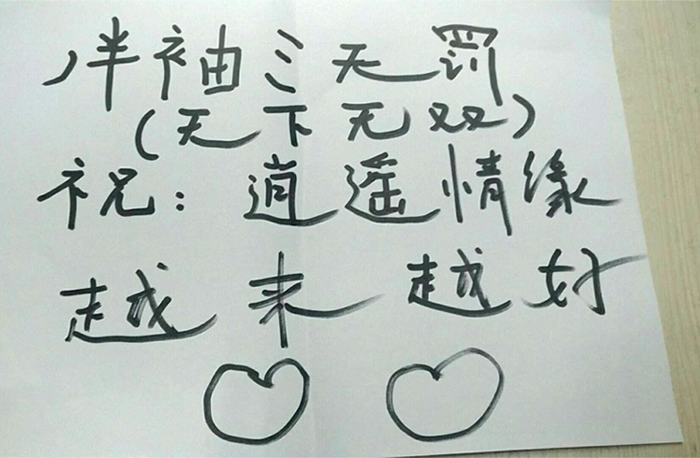 丿半袖ミ无罚
(天下无双)
祝：逍遥情缘
越来越好